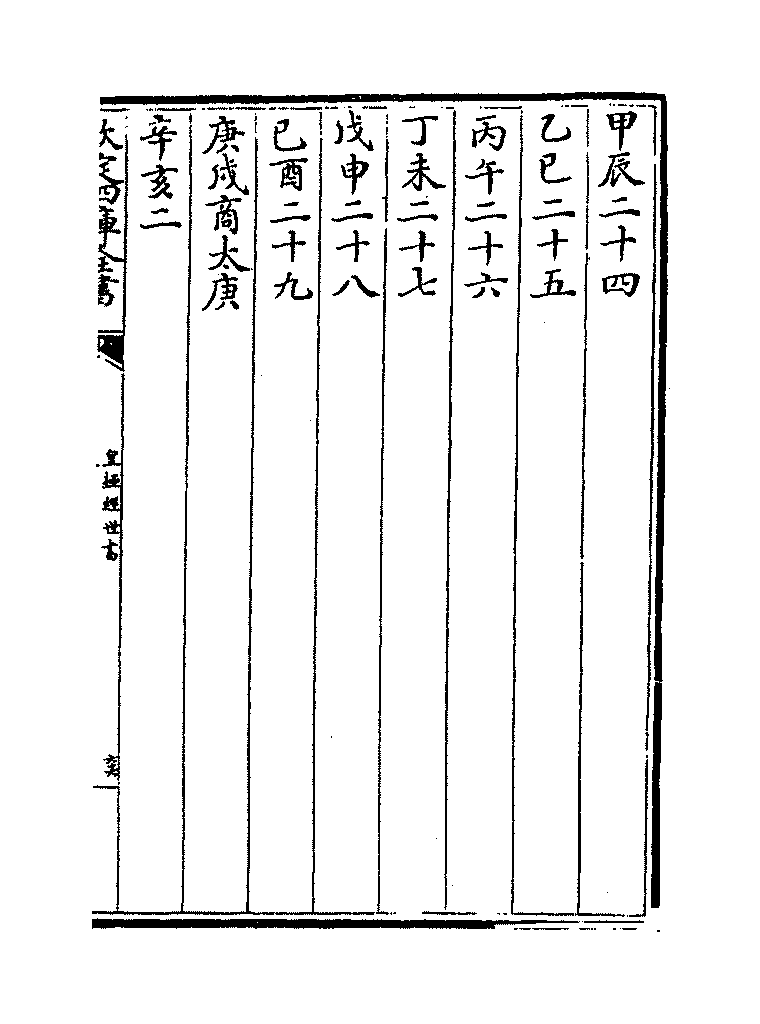 甲辰二十四
乙巳二十五
丙午二十六
丁未二十七
戊申二十八
己酉二十九
庚戌商太庚
辛亥二
欽定四庫全書
皇極經世書